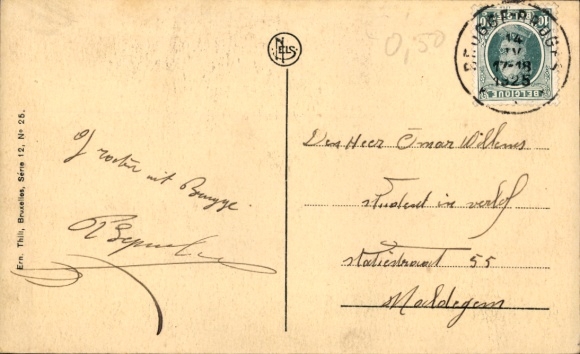 Ern. Thill, Bruxelles, Série 12, No 25.
NELS
0,50
BRUGGE BRUGES
14
IV
17-18
1925
BELGIQUE
Groeten uit Brugge.
Den Heer Omar Willems
Student in verlof
Statiestraat 55
Maldegem